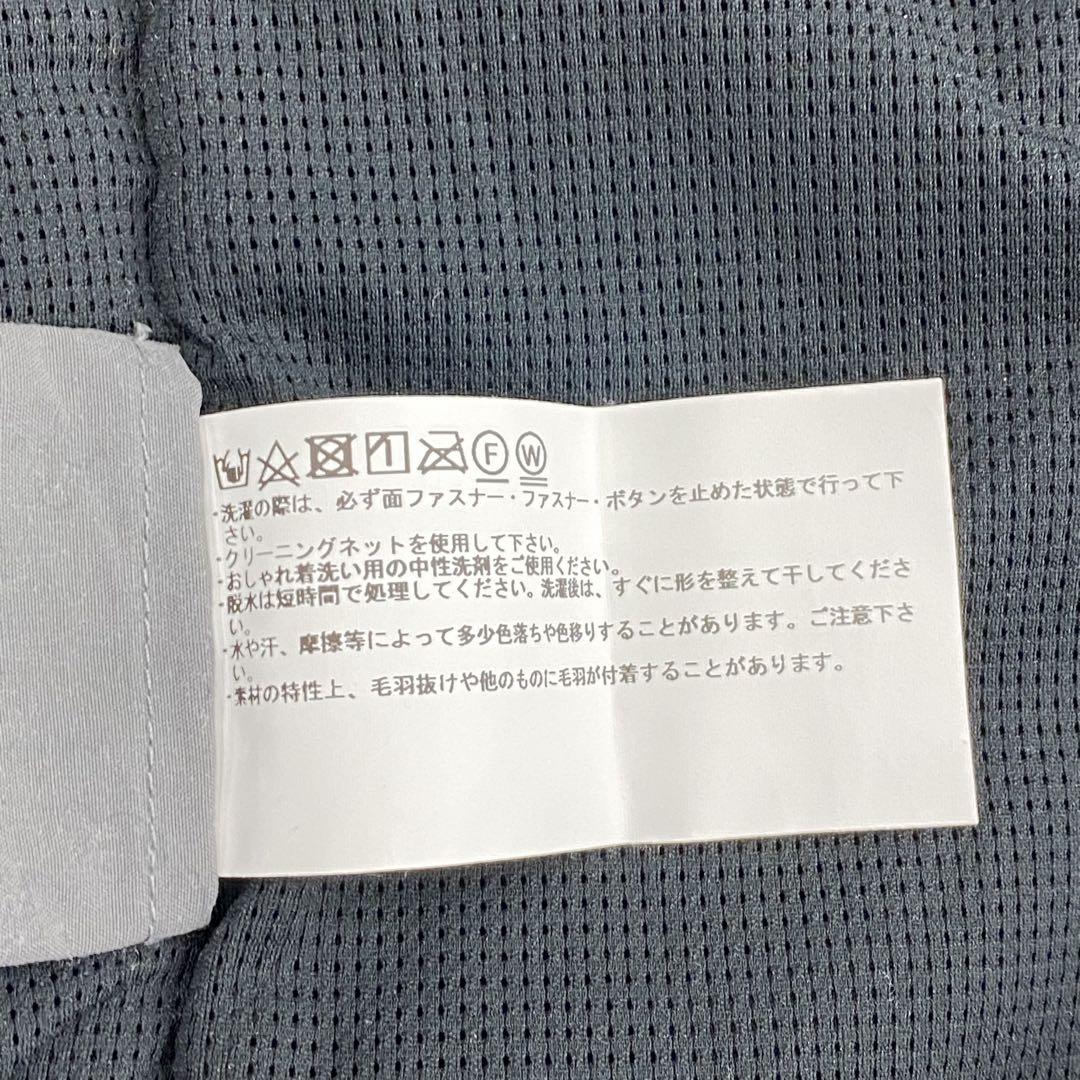 F W
・洗濯の際は、必ず面ファスナー・ファスナー・ボタンを止めた状態で行って下
さい。
・クリーニングネットを使用して下さい。
・おしゃれ着洗い用の中性洗剤をご使用ください。
・脱水は短時間で処理してください。洗濯後は、すぐに形を整えて干してくださ
い。
・水や汗、摩擦等によって多少色落ちや色移りすることがあります。ご注意下さ
い。
・素材の特性上、毛羽抜けや他のものに毛羽が付着することがあります。